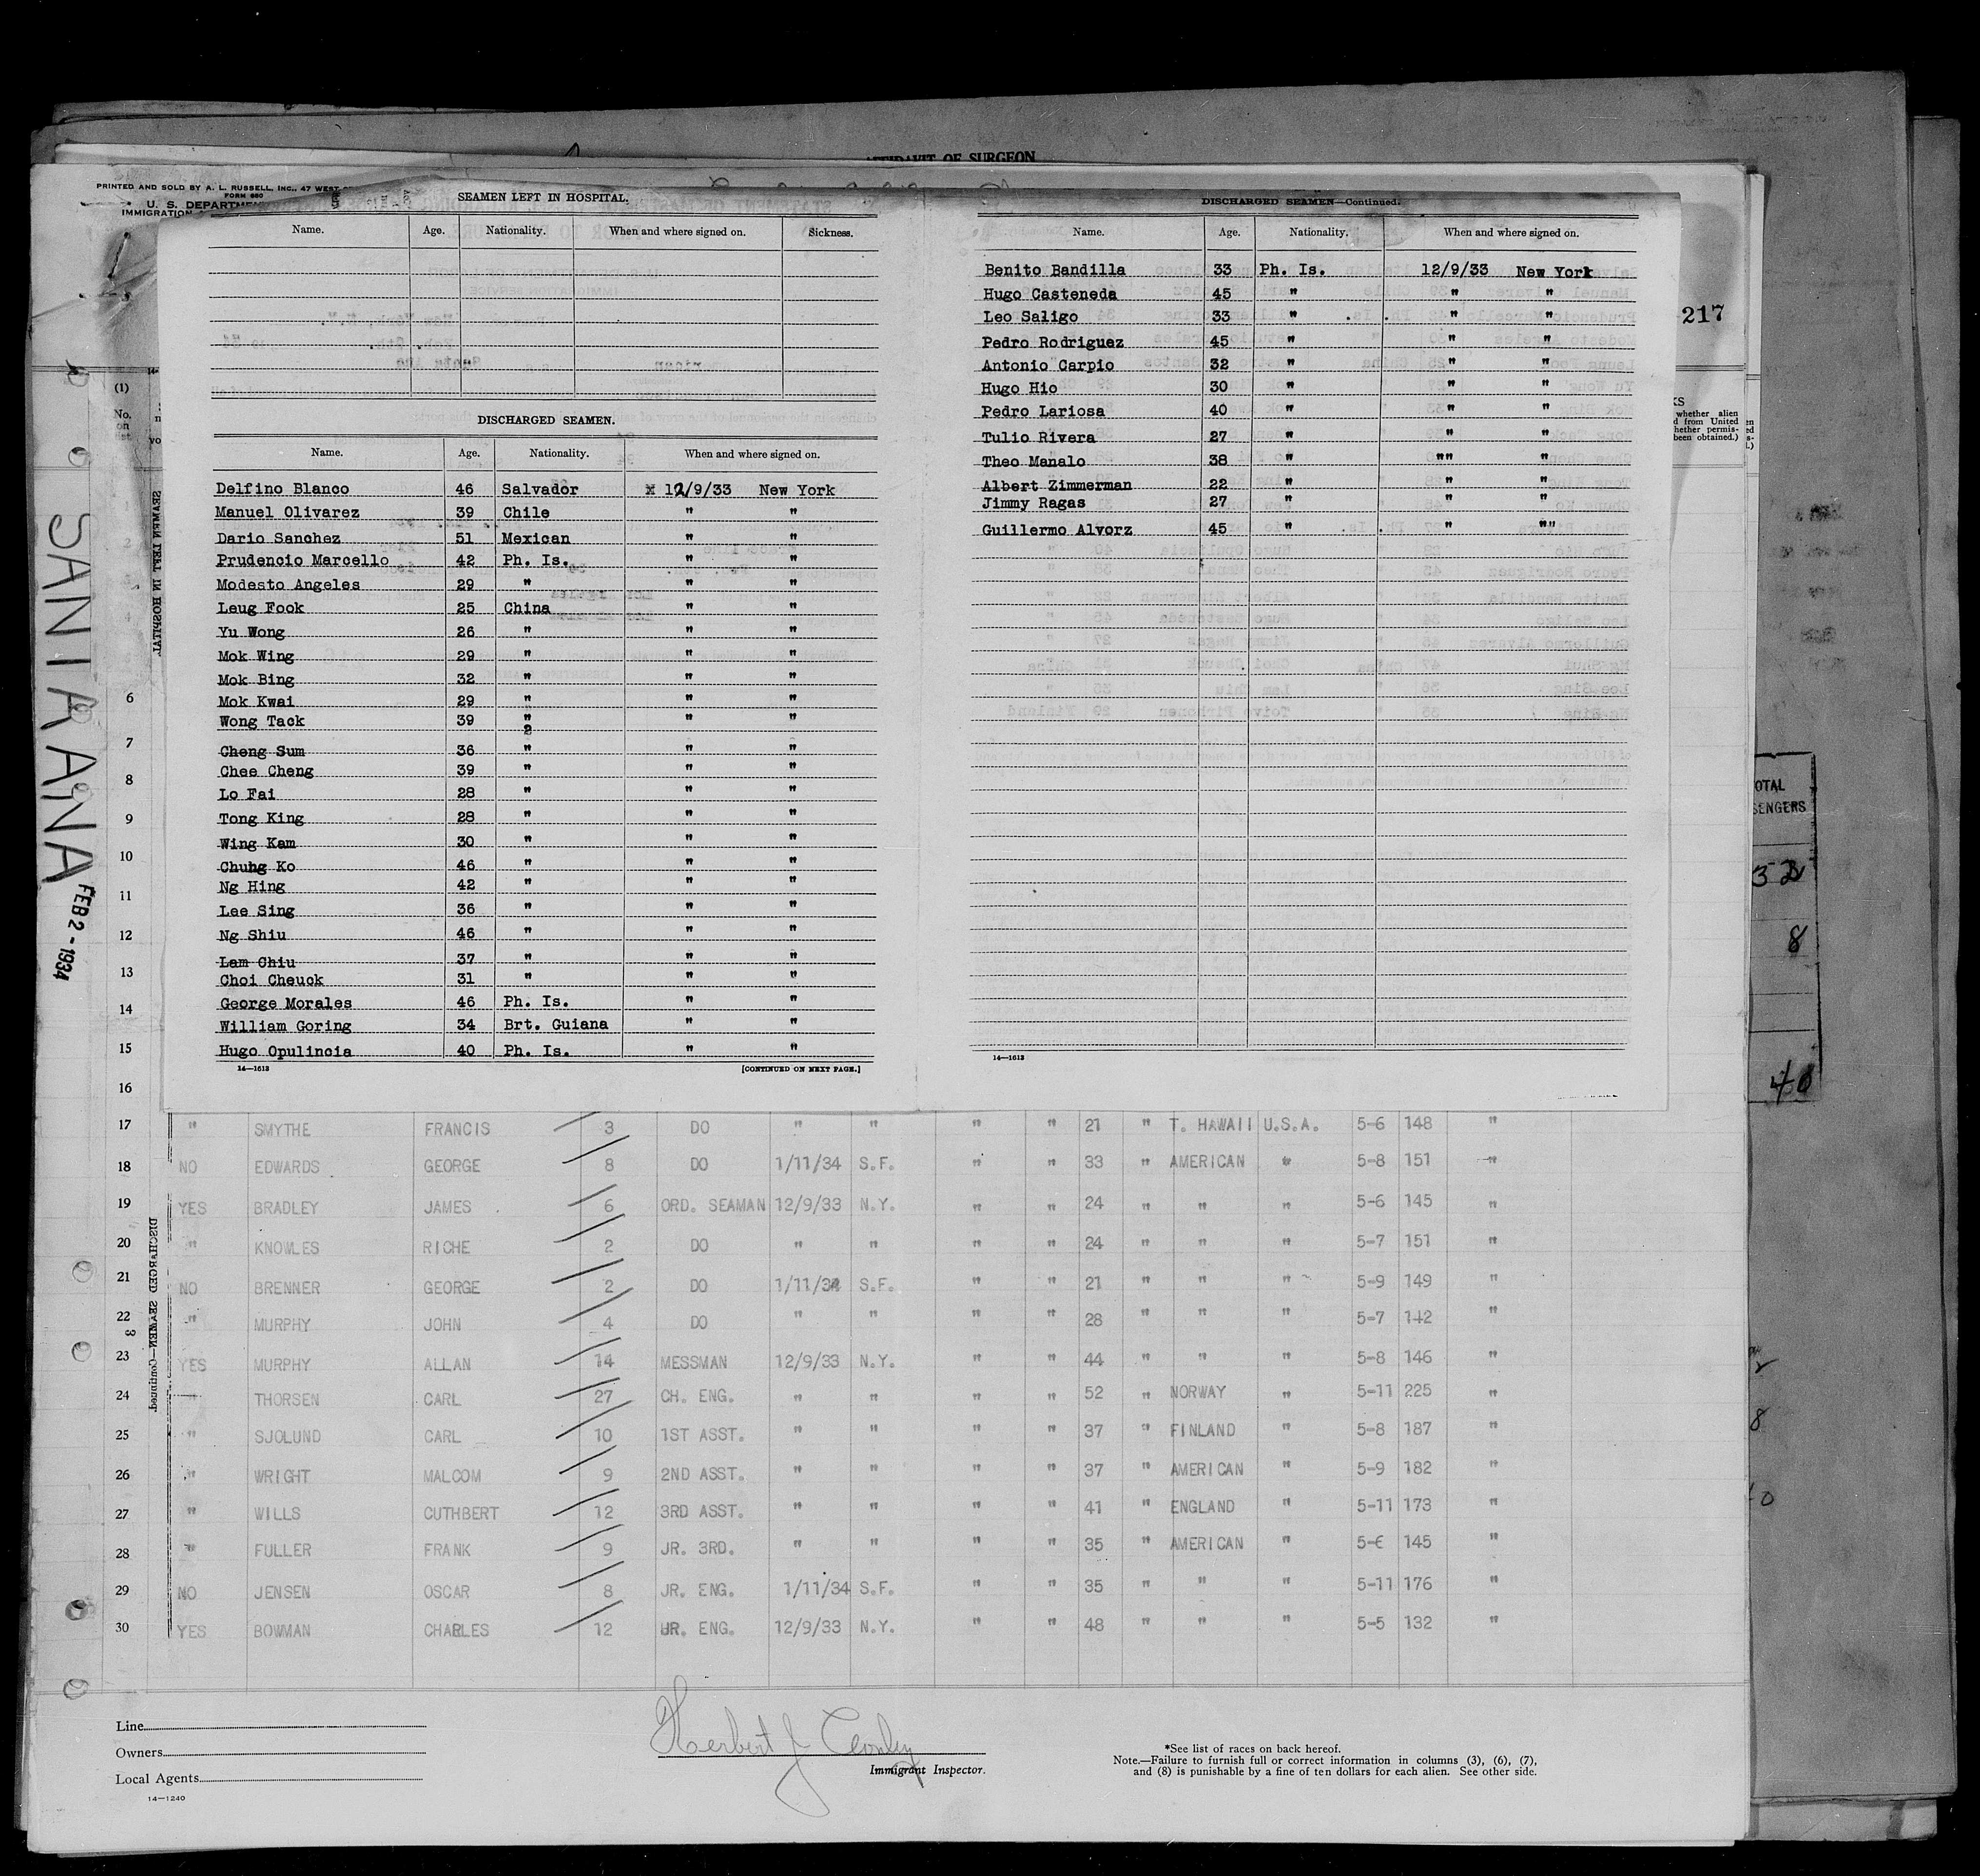 AFFIDAVIT OF SURGEON
PRINTED AND SOLD BY A. L. RUSSELL, INC., 47 WEST
FORM 680
U. S. DEPARTMENT
IMMIGRATION
SEAMEN LEFT IN HOSPITAL.
Name. Age. Nationality. When and where signed on. Sickness.
DISCHARGED SEAMEN.
Name. Age. Nationality. When and where signed on.
Delfino Blanco 46 Salvador x 12/9/33 New York
Manuel Olivarez 39 Chile " "
Dario Sanchez 51 Mexican " "
Prudencio Marcello 42 Ph. Is. " "
Modesto Angeles 29 " " "
Leug Fook 25 China " "
Yu Wong 26 " " "
Mok Wing 29 " " "
Mok Bing 32 " " "
Mok Kwai 29 " " "
Wong Tack 39 " " "
2
Cheng Sum 36 " " "
Chee Cheng 39 " " "
Lo Fai 28 " " "
Tong King 28 " " "
Wing Kam 30 " " "
Chung Ko 46 " " "
Ng Hing 42 " " "
Lee Sing 36 " " "
Ng Shiu 46 " " "
Lam Chiu 37 " " "
Choi Cheuck 31 " " "
George Morales 46 Ph. Is. " "
William Goring 34 Brt. Guiana " "
Hugo Opulincia 40 Ph. Is. " "
14—1613 [CONTINUED ON NEXT PAGE.]
DISCHARGED SEAMEN—Continued.
Name. Age. Nationality. When and where signed on.
Benito Bandilla 33 Ph. Is. 12/9/33 New York
Hugo Casteneda 45 " " "
Leo Saligo 33 " " "
Pedro Rodriguez 45 " " "
Antonio Carpio 32 " " "
Hugo Hio 30 " " "
Pedro Lariosa 40 " " "
Tulio Rivera 27 " " "
Theo Manalo 38 " "" "
Albert Zimmerman 22 " " "
Jimmy Ragas 27 " " "
Guillermo Alvorz 45 " " ""
14—1613
217
(1)
No.
on
list.
KS
whether alien
d from United
hether permis-
been obtained.)
OTAL
SENGERS
32
8
40
SANTA ANA
FEB 2 - 1934
SEAMEN LEFT IN HOSPITAL.
DISCHARGED SEAMEN—Continued.
3
1
2
4
6
7
8
9
10
11
12
13
14
15
16
17 " SMYTHE FRANCIS 3 DO " " " " 21 " T. HAWAII U.S.A. 5-6 148 "
18 NO EDWARDS GEORGE 8 DO 1/11/34 S.F. " " 33 " AMERICAN " 5-8 151 "
19 YES BRADLEY JAMES 6 ORD. SEAMAN 12/9/33 N.Y. " " 24 " " " 5-6 145 "
20 " KNOWLES RICHE 2 DO " " " " 24 " " " 5-7 151 "
21 NO BRENNER GEORGE 2 DO 1/11/34 S.F. " " 21 " " " 5-9 149 "
22 " MURPHY JOHN 4 DO " " " " 28 " " " 5-7 142 "
23 YES MURPHY ALLAN 14 MESSMAN 12/9/33 N.Y. " " 44 " " " 5-8 146 "
24 " THORSEN CARL 27 CH. ENG. " " " " 52 " NORWAY " 5-11 225 "
25 " SJOLUND CARL 10 1ST ASST. " " " " 37 " FINLAND " 5-8 187 "
26 " WRIGHT MALCOM 9 2ND ASST. " " " " 37 " AMERICAN " 5-9 182 "
27 " WILLS CUTHBERT 12 3RD ASST. " " " " 41 " ENGLAND " 5-11 173 "
28 " FULLER FRANK 9 JR. 3RD. " " " " 35 " AMERICAN " 5-6 145 "
29 NO JENSEN OSCAR 8 JR. ENG. 1/11/34 S.F. " " 35 " " " 5-11 176 "
30 YES BOWMAN CHARLES 12 JR. ENG. 12/9/33 N.Y. " " 48 " " " 5-5 132 "
Line
Owners
Local Agents
14—1240
Herbert J
Immigrant Inspector.
*See list of races on back hereof.
Note.—Failure to furnish full or correct information in columns (3), (6), (7),
and (8) is punishable by a fine of ten dollars for each alien. See other side.